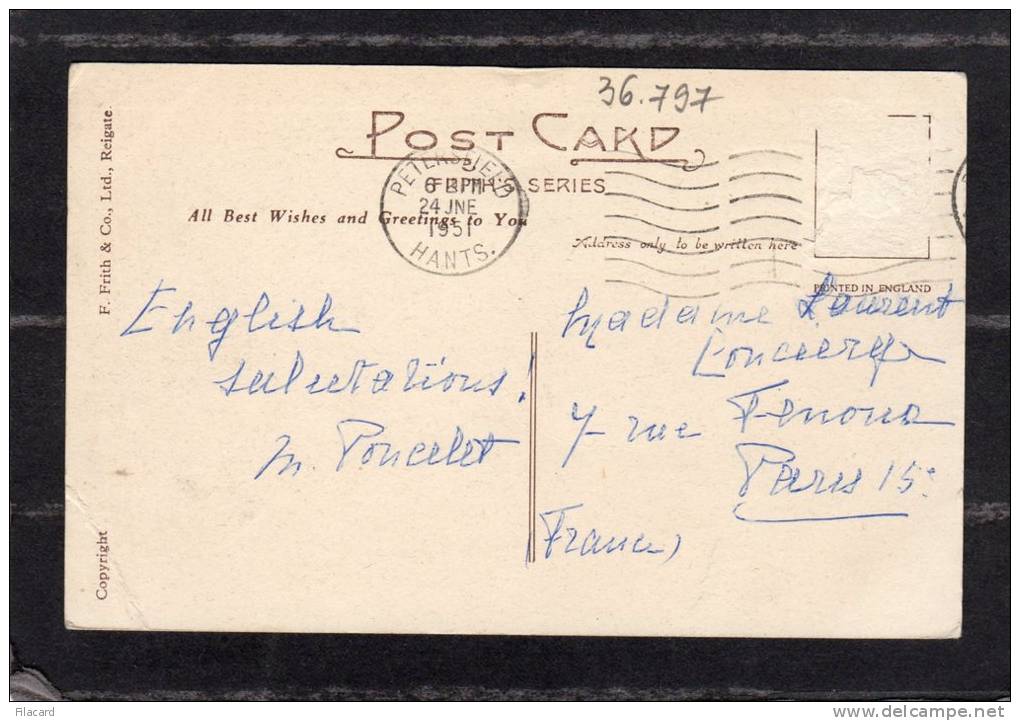 36.797
POST CARD
FRITH'S SERIES
All Best Wishes and Greetings to You
Address only to be written here
PRINTED IN ENGLAND
PETERSFIELD
24 JNE
1951
HANTS.
F. Frith & Co., Ltd., Reigate.
Copyright
English
salutations!
M. Poncelet
Madame Laurent
Concierge
7 rue Fenoux
Paris 15e
(France)
Filacard
delcampe.net